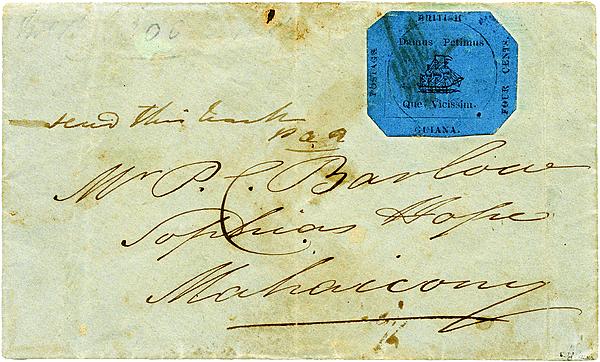 BRITISH
Damus Petimus
POSTAGE
FOUR CENTS.
Que Vicissim.
GUIANA.
send this
Mr P. C. Barlow
Sophias Hope
Mahaicony